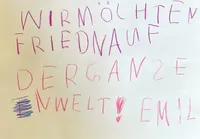 WIR MÖCHTEN
FRIEDN AUF
DER GANZE
NWELT! EMIL